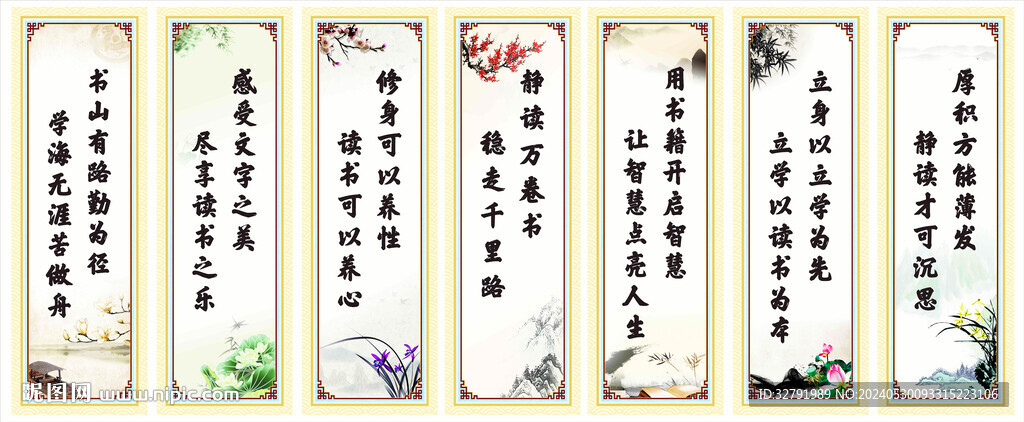 书山有路勤为径
学海无涯苦做舟
感受文字之美
尽享读书之乐
修身可以养性
读书可以养心
静读万卷书
稳走千里路
用书籍开启智慧
让智慧点亮人生
立身以立学为先
立学以读书为本
厚积方能薄发
静读才可沉思
昵图网 www.nipic.com
ID:32791989 NO:20240530093315223106